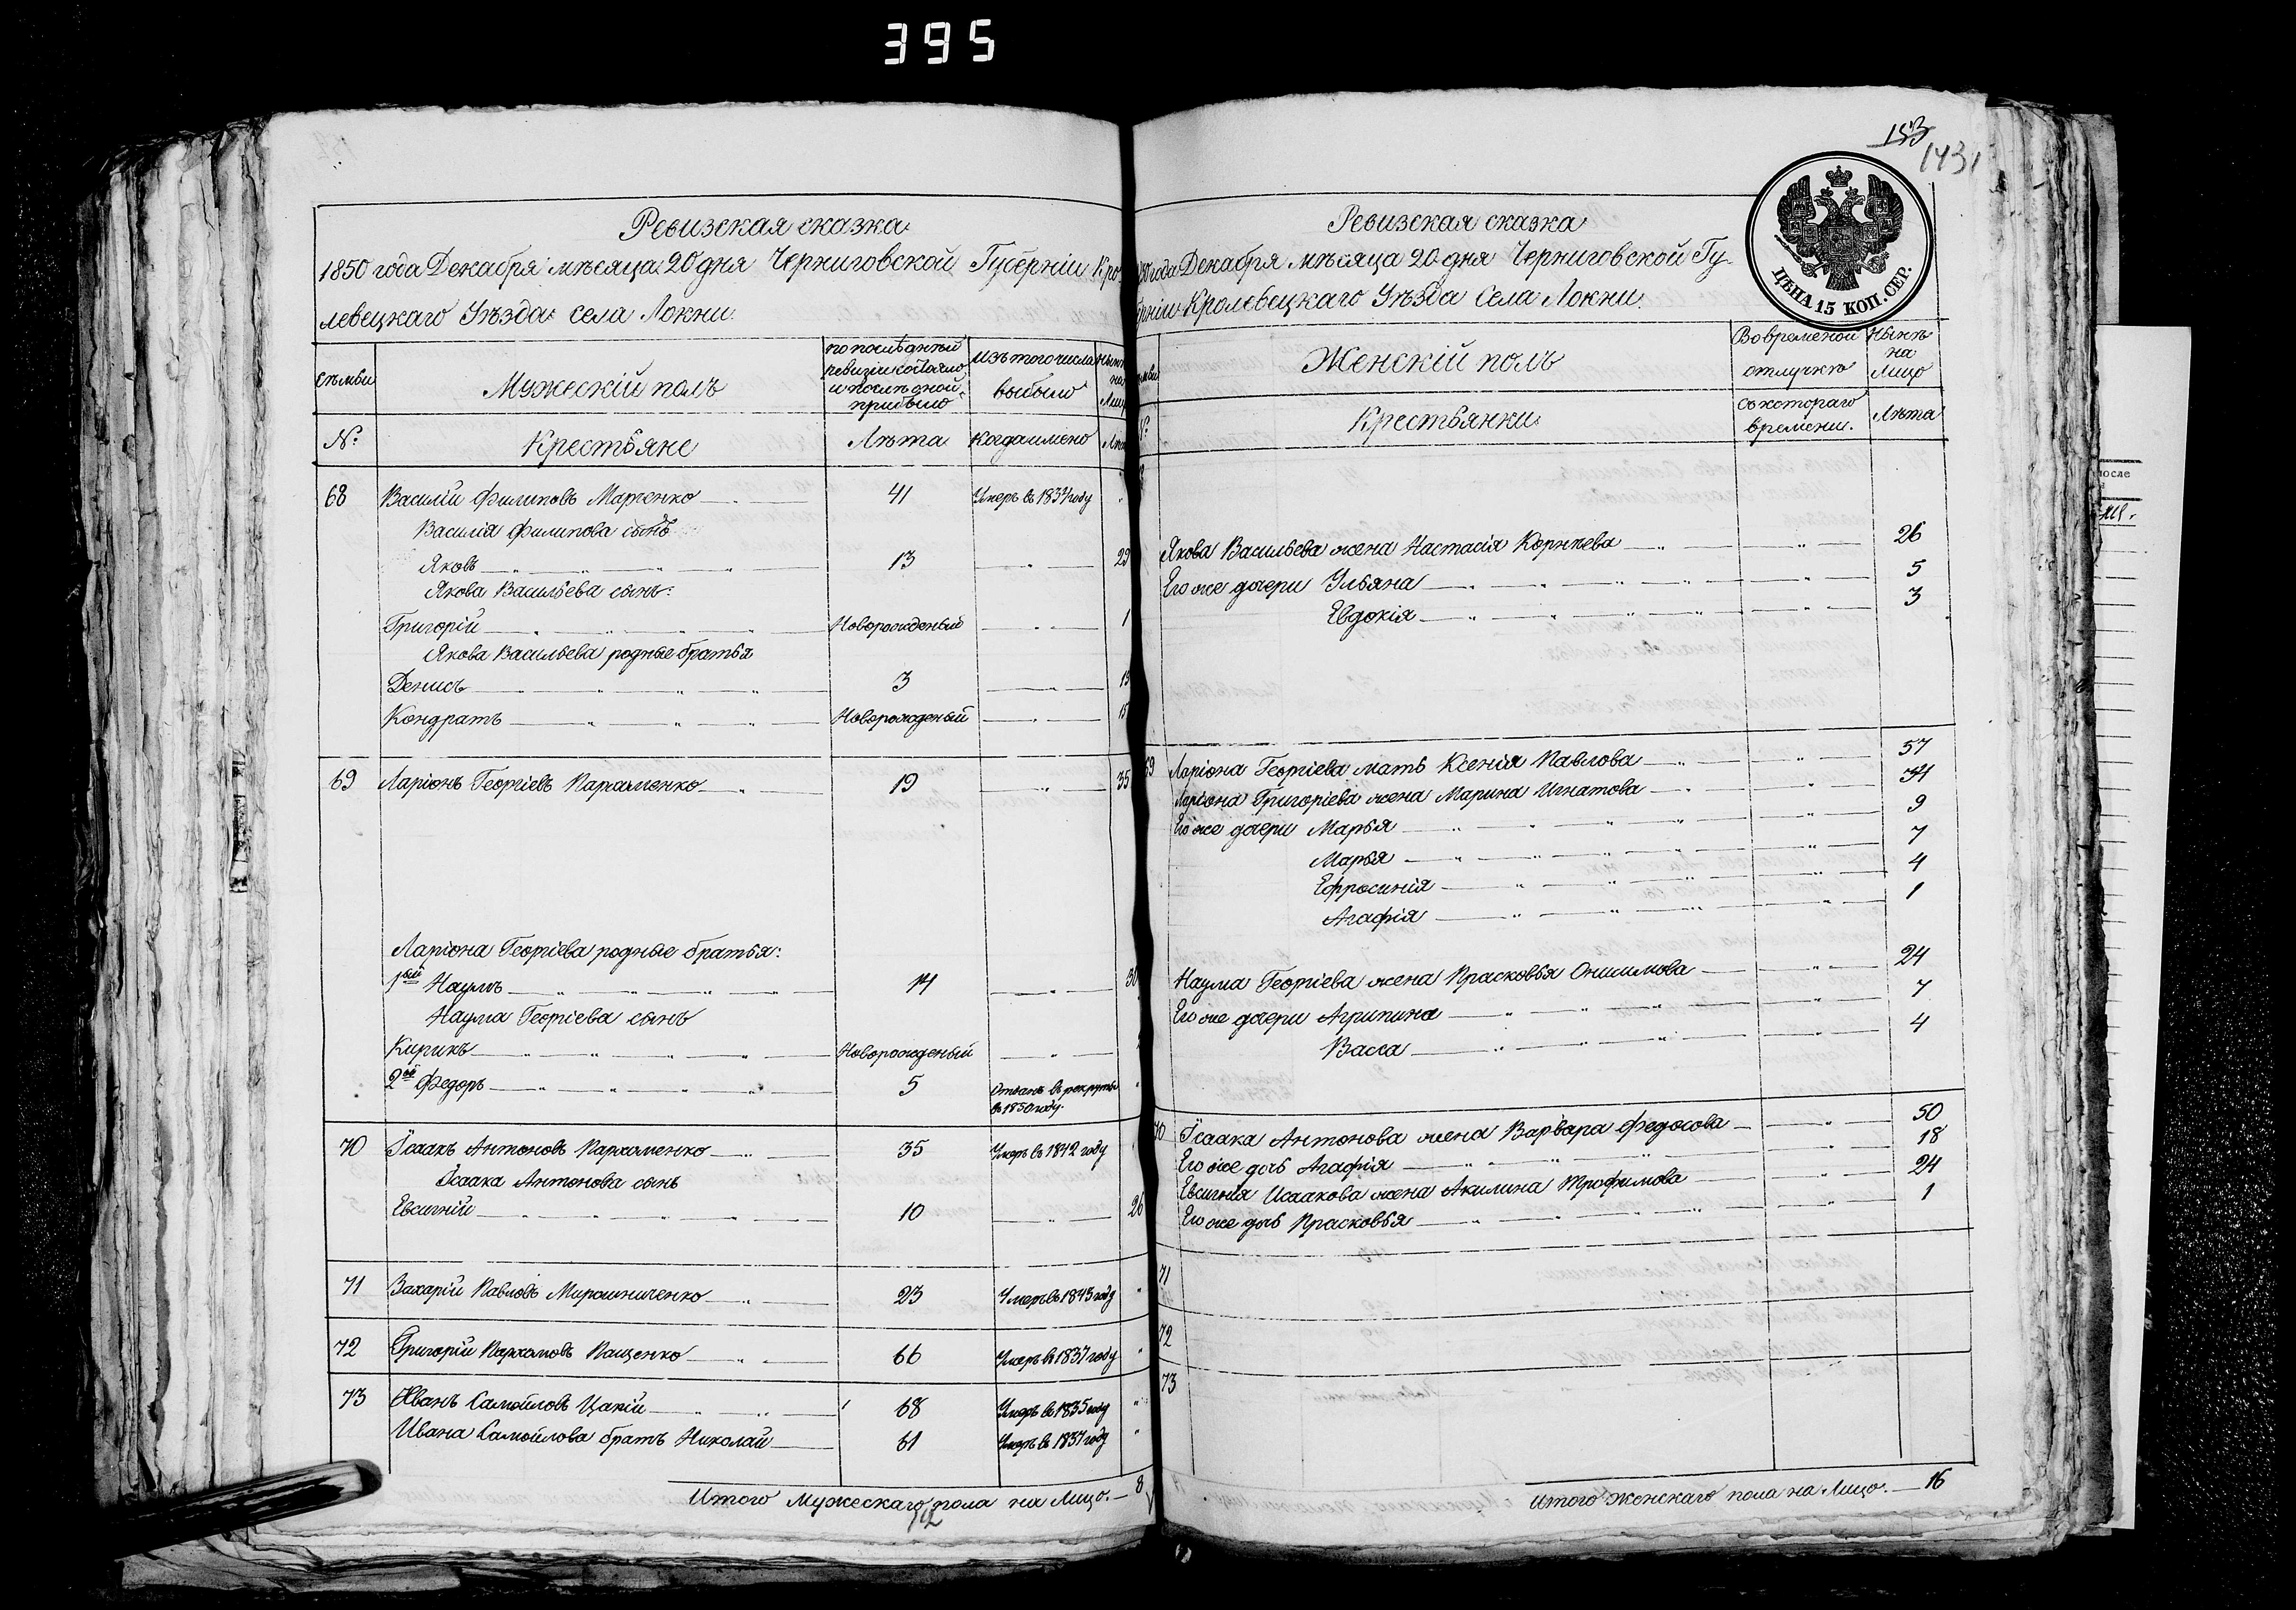 395
153
1431
Ревизская сказка
1850 года Декабря мѣсяца 20 дня Черниговской Губерніи Кро-
левецкаго Уѣзда села Локни.
семьи
Мужескій полъ
по послѣдней ревизіи состояло и послѣ оной прибыло
Изъ того числа выбыло
Ныне на лицо
№:
Крестьяне
Лѣта
Когда имено
68 Василій Филиповъ Марченко 41 Умеръ въ 1837 году
Василія Филипова сынъ
Яковъ 13 29
Якова Васильева сынъ:
Григорій Новорожденый 1
Якова Васильева родные братья
Денисъ 3 19
Кондратъ Новорожденый 15
69 Ларіонъ Георгіевъ Пархоменко 19 35
Ларіона Георгіева родные братья:
1ый Наумъ 14 30
Наума Георгіева сынъ
Кирикъ Новорожденый
2й Федоръ 5 Отданъ въ рекруты
въ 1850 году.
70 Ісаакъ Антоновъ Пархоменко 35 Умеръ въ 1842 году
Ісаака Антонова сынъ
Евсигній 10 26
71 Захарій Павловъ Мирошниченко 23 Умеръ въ 1843 году
72 Григорій Пархомовъ Пащенко 66 Умеръ въ 1837 году
73 Иванъ Самойловъ Цакій 68 Умеръ въ 1835 году
Ивана Самойлова братъ Николай 61 Умеръ въ 1837 году
Итого Мужескаго пола на Лицо. 8
12
Ревизская сказка
года Декабря мѣсяца 20 дня Черниговской Гу-
берніи Кролевецкаго Уѣзда Села Локни.
ЦѢНА 15 КОП. СЕР.
Женскій полъ
Во временой отлучкѣ
Нынѣ на Лицо
Крестьянки
Съ котораго времени.
Лѣта
Якова Васильева жена Настасія Корнѣева 26
Его же дочери Ульяна 5
Евдокія 3
69 Ларіона Георгіева мать Ксенія Павлова 57
Ларіона Григоріева жена Марина Игнатова 34
Его же дочери Марья 9
Марья 7
Ефросинія 4
Агафія 1
Наума Георгіева жена Прасковья Онисимова 24
Его же дочери Агрипина 7
Васса 4
70 Ісаака Антонова жена Варвара Федосова 50
Его же дочь Агафія 18
Евсигнія Исаакова жена Акилина Трофимова 24
Его же дочь Прасковья 1
71
72
73
Итого Женскаго пола на Лицо. 16
после